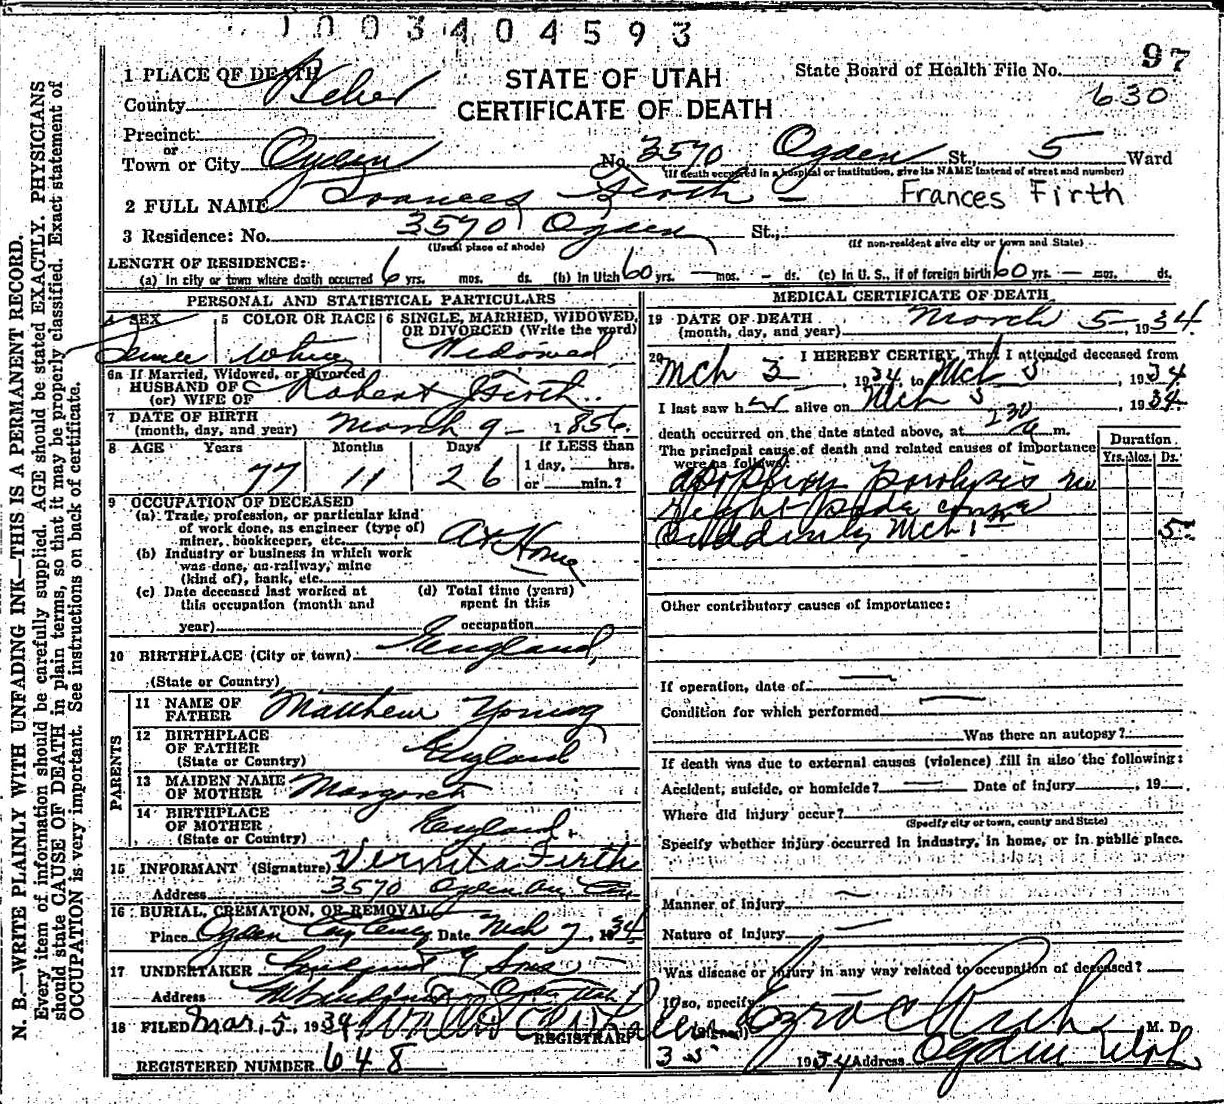 1003404593
97
1 PLACE OF DEATH
STATE OF UTAH
State Board of Health File No.
County Weber
CERTIFICATE OF DEATH
630
Precinct
or
Town or City Ogden No. 3570 Ogden St., 5 Ward
(If death occurred in a hospital or institution, give its NAME instead of street and number)
2 FULL NAME Frances Firth - Frances Firth
3 Residence: No. 3570 Ogden St.,
(Usual place of abode) (If non-resident give city or town and State)
LENGTH OF RESIDENCE:
(a) In city or town where death occurred 6 yrs. mos. ds. (b) In Utah 60 yrs. - mos. - ds. (c) In U. S., if of foreign birth 60 yrs. - mos. ds.
PERSONAL AND STATISTICAL PARTICULARS
4 SEX 5 COLOR OR RACE 6 SINGLE, MARRIED, WIDOWED, OR DIVORCED (Write the word)
Female White Widowed
6a If Married, Widowed, or Divorced
HUSBAND OF
(or) WIFE OF Robert Firth
7 DATE OF BIRTH
(month, day, and year) March 9 - 1856
8 AGE Years Months Days If LESS than
77 11 26 1 day, hrs.
or min.?
9 OCCUPATION OF DECEASED
(a) Trade, profession, or particular kind
of work done, as engineer (type of)
miner, bookkeeper, etc. At Home
(b) Industry or business in which work
was done, as railway, mine
(kind of), bank, etc.
(c) Date deceased last worked at
this occupation (month and
year)
(d) Total time (years)
spent in this
occupation
10 BIRTHPLACE (City or town) England
(State or Country)
PARENTS
11 NAME OF
FATHER Matthew Young
12 BIRTHPLACE
OF FATHER England
(State or Country)
13 MAIDEN NAME
OF MOTHER Margaret
14 BIRTHPLACE
OF MOTHER England
(State or Country)
15 INFORMANT (Signature) Vernita Firth
Address 3570 Ogden Ave
16 BURIAL, CREMATION, OR REMOVAL
Place Ogden City Date Mch 7, 1934
17 UNDERTAKER Lindquist & Sons
Address Ogden Utah
18 FILED Mar. 5, 1934
REGISTRAR
REGISTERED NUMBER 648
MEDICAL CERTIFICATE OF DEATH
19 DATE OF DEATH
(month, day, and year) March 5 - 1934
20 I HEREBY CERTIFY, That I attended deceased from
Mch 3, 1934 to Mch 5, 1934
I last saw her alive on Mch 5 1934
death occurred on the date stated above, at 230 a m.
The principal cause of death and related causes of importance
were as follows:
Duration
Yrs. Mos. Ds.
paralysis
Right Side
Suddenly Mch 1st 5
Other contributory causes of importance:
If operation, date of
Condition for which performed
Was there an autopsy?
If death was due to external causes (violence) fill in also the following:
Accident, suicide, or homicide? Date of injury , 19
Where did injury occur?
(Specify city or town, county and State)
Specify whether injury occurred in industry, in home, or in public place.
Manner of injury
Nature of injury
Was disease or injury in any way related to occupation of deceased?
If so, specify
(Signed) Ezra C Rich M. D.
3 5 1934 Address Ogden Utah
N. B.—WRITE PLAINLY WITH UNFADING INK—THIS IS A PERMANENT RECORD.
Every item of information should be carefully supplied. AGE should be stated EXACTLY. PHYSICIANS
should state CAUSE OF DEATH in plain terms, so that it may be properly classified. Exact statement of
OCCUPATION is very important. See instructions on back of certificate.